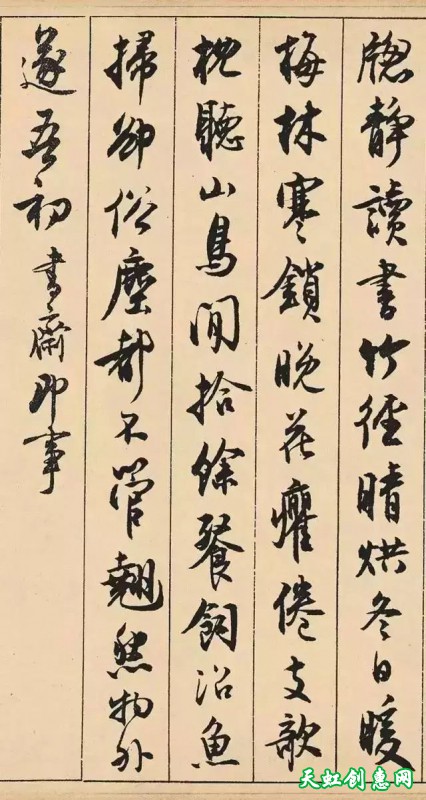 窓静讀書竹徑晴烘冬日暖
梅林寒鎖晚花癯倦支欹
枕聽山鳥閒拾餘餐飼沼魚
掃卻俗塵都不管翹然物外
遂吾初 書齋即事
天虹创惠网